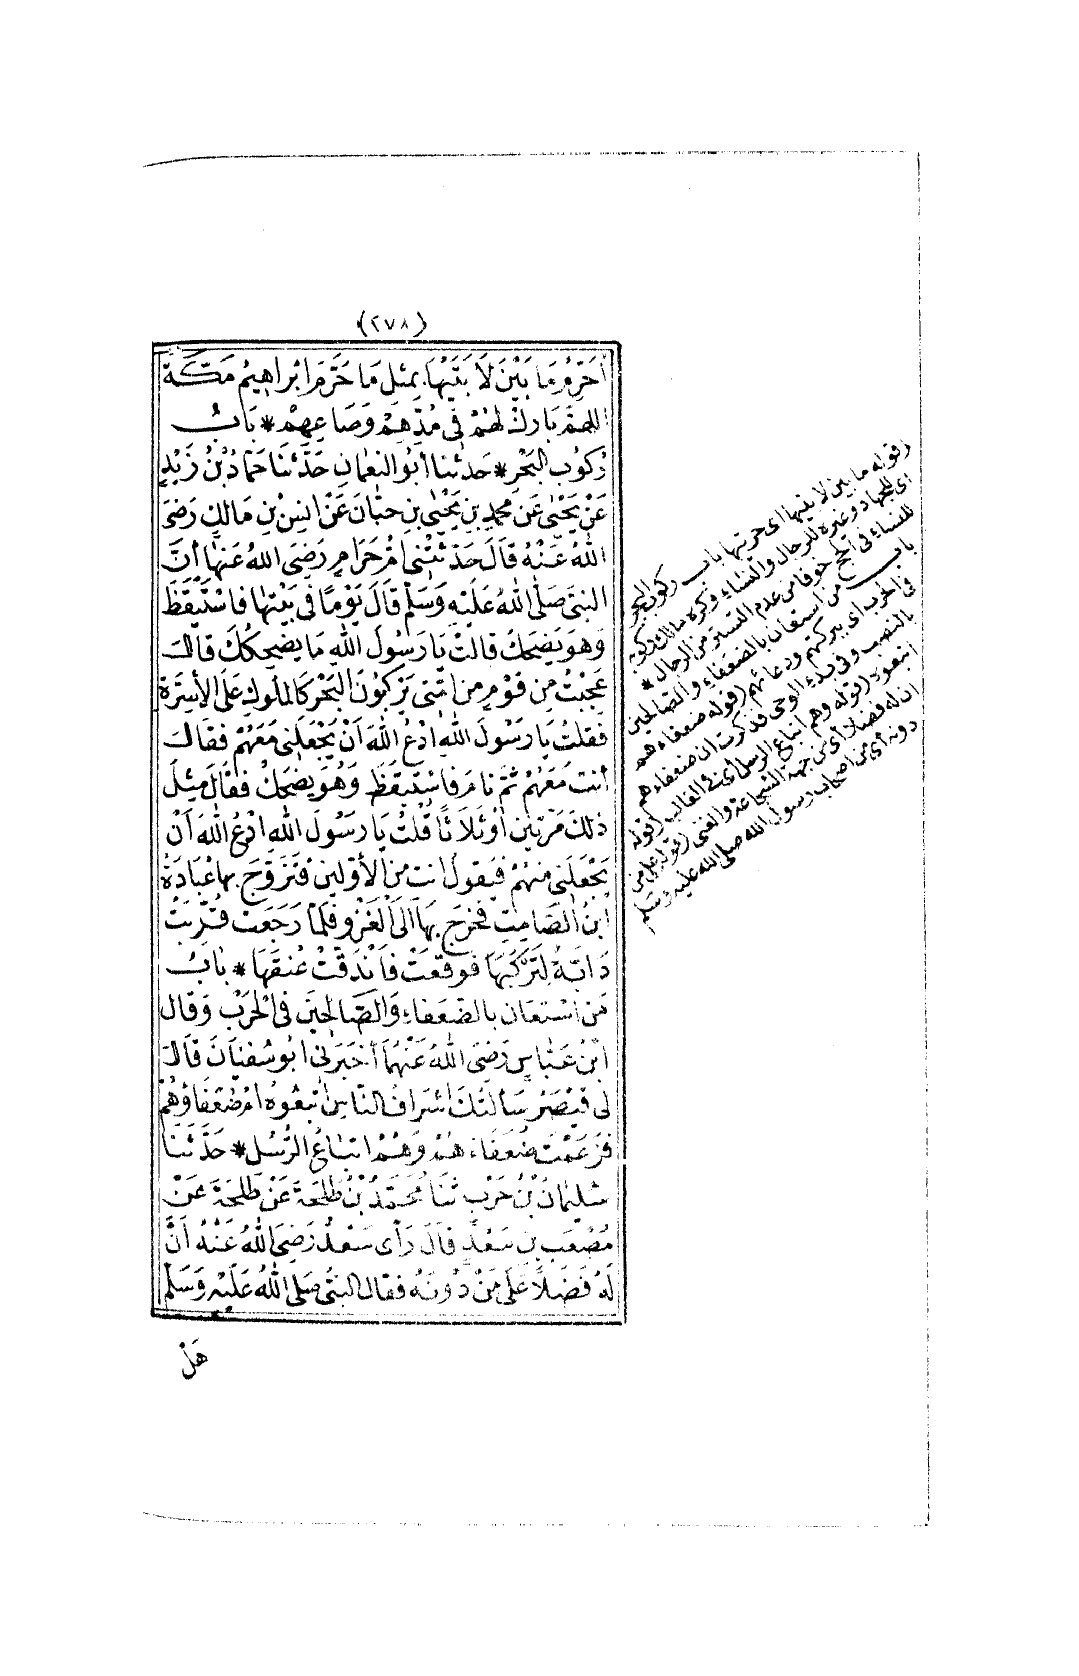 (٢٧٨)
أُحَرِّمُ مَا بَيْنَ لَا بَتَيْهَا بِمِثْلِ مَا حَرَّمَ ابْرَاهِيمُ مَكَّةَ
اللهمَّ بَارِكْ لَهُمْ فِي مُدِّهِمْ وَصَاعِهِمْ * بَابُ
رُكُوبِ البَحْرِ * حَدثنا أبو النعمانِ حَدَّثنَا حَمَّادُ بْنُ زَيْدٍ
عَنْ يَحْيٰى عَن محمدِ بنِ يَحْيٰى بنِ حبَّان عَنْ انسِ بْنِ مَالكٍ رَضِيَ
اللهُ عَنْهُ قَالَ حَدثَتْنِي امُّ حَرَامٍ رَضِيَ اللهُ عَنهَا أنَّ
النبيَّ صَلَّى اللهُ عَلَيْهِ وَسَلَّمَ قَالَ يَوْمًا فِي بَيْتِهَا فَاسْتَيْقَظَ
وَهوَ يَضحَكُ قالتْ يَا رَسُولَ اللهِ مَا يضحِكُكَ قالَ
عَجبْتُ مِن قَوْمٍ مِن امَّتِي يَرْكَبُونَ البَحْرَ كَالملُوكِ عَلَى الأسِرَّةِ
فَقلتُ يَا رَسُولَ اللهِ ادْعُ اللهَ أنْ يَجْعَلَنِي مَعَهُمْ فَقَالَ
أنتِ مَعَهُمْ ثمَّ نَامَ فَاسْتَيقَظَ وَهُوَ يَضحَكُ فقَالَ مِثْلَ
ذلكَ مَرَّتينِ أوْ ثَلَاثًا قُلْتُ يَا رَسُولَ اللهِ ادْعُ اللهَ أنْ
يَجْعَلَنِي مِنهُمْ فَيَقولُ انتِ مِنَ الأوَّلينَ فتَزَوَّجَ بِهَا عُبَادَةُ
ابنُ الصَّامِتِ فخرَجَ بِهَا الَى الغَزْوِ فَلمَّا رَجَعَتْ قُرِّبَتْ
دَابَّةٌ لِتَرْكَبَهَا فَوقَعَتْ فَانْدَقَّتْ عُنقُهَا * بَابُ
مَنِ اسْتعَانَ بالضُعَفاءِ وَالصَّالحِينَ فِى الحَرْبِ وَقَال
ابْنُ عَبَّاسٍ رَضِيَ اللهُ عَنْهُمَا أخْبَرَنِي ابُو سُفْيَانَ قَالَ
لِي قَيْصَرُ سَألتُكَ اشْرَافُ النَّاسِ اتبعُوهُ امْ ضُعَفَاؤُهُمْ
فَزَعَمْتَ ضُعَفَاءَهُمْ وَهُمْ اتبَاعُ الرُّسُلِ * حَدَّثَنَا
سُليمَانُ بْنُ حَرْبٍ ثَنَا مُحَمَّدُ بْنُ طَلحَةَ عَنْ طَلحَةَ عَنْ
مُصْعَبِ بنِ سَعْدٍ قَالَ رَأى سَعْدٌ رَضِيَ اللهُ عَنْهُ أنَّ
لَهُ فَضْلًا عَلَى مَنْ دُونَهُ فقال النبيُّ صَلَّى اللهُ عَلَيْهِ وَسَلَّمَ
هَلْ
(قوله ما بين لا بتيها) اى حرتيها باب ركوب البحر
اى للجهاد وغيره للرجال والنساء وكره مالك ركوبه
للنساء فى الحج خوفا من عدم التستر من الرجال *
باب من استعان بالضعفاء والصالحين
فى الحرب اى ببركتهم ودعائهم (قوله ضعفاءهم
بالنصب وفى بدء الوحى فذكرت ان ضعفاءهم
اتبعوه (قوله وهم اتباع الرسل) اى فى الغالب (قوله
ان له فضلا) أى من جهة الشجاعة والغنى (قوله على من
دونه) أى من اصحاب رسول الله صلى الله عليه وسلم